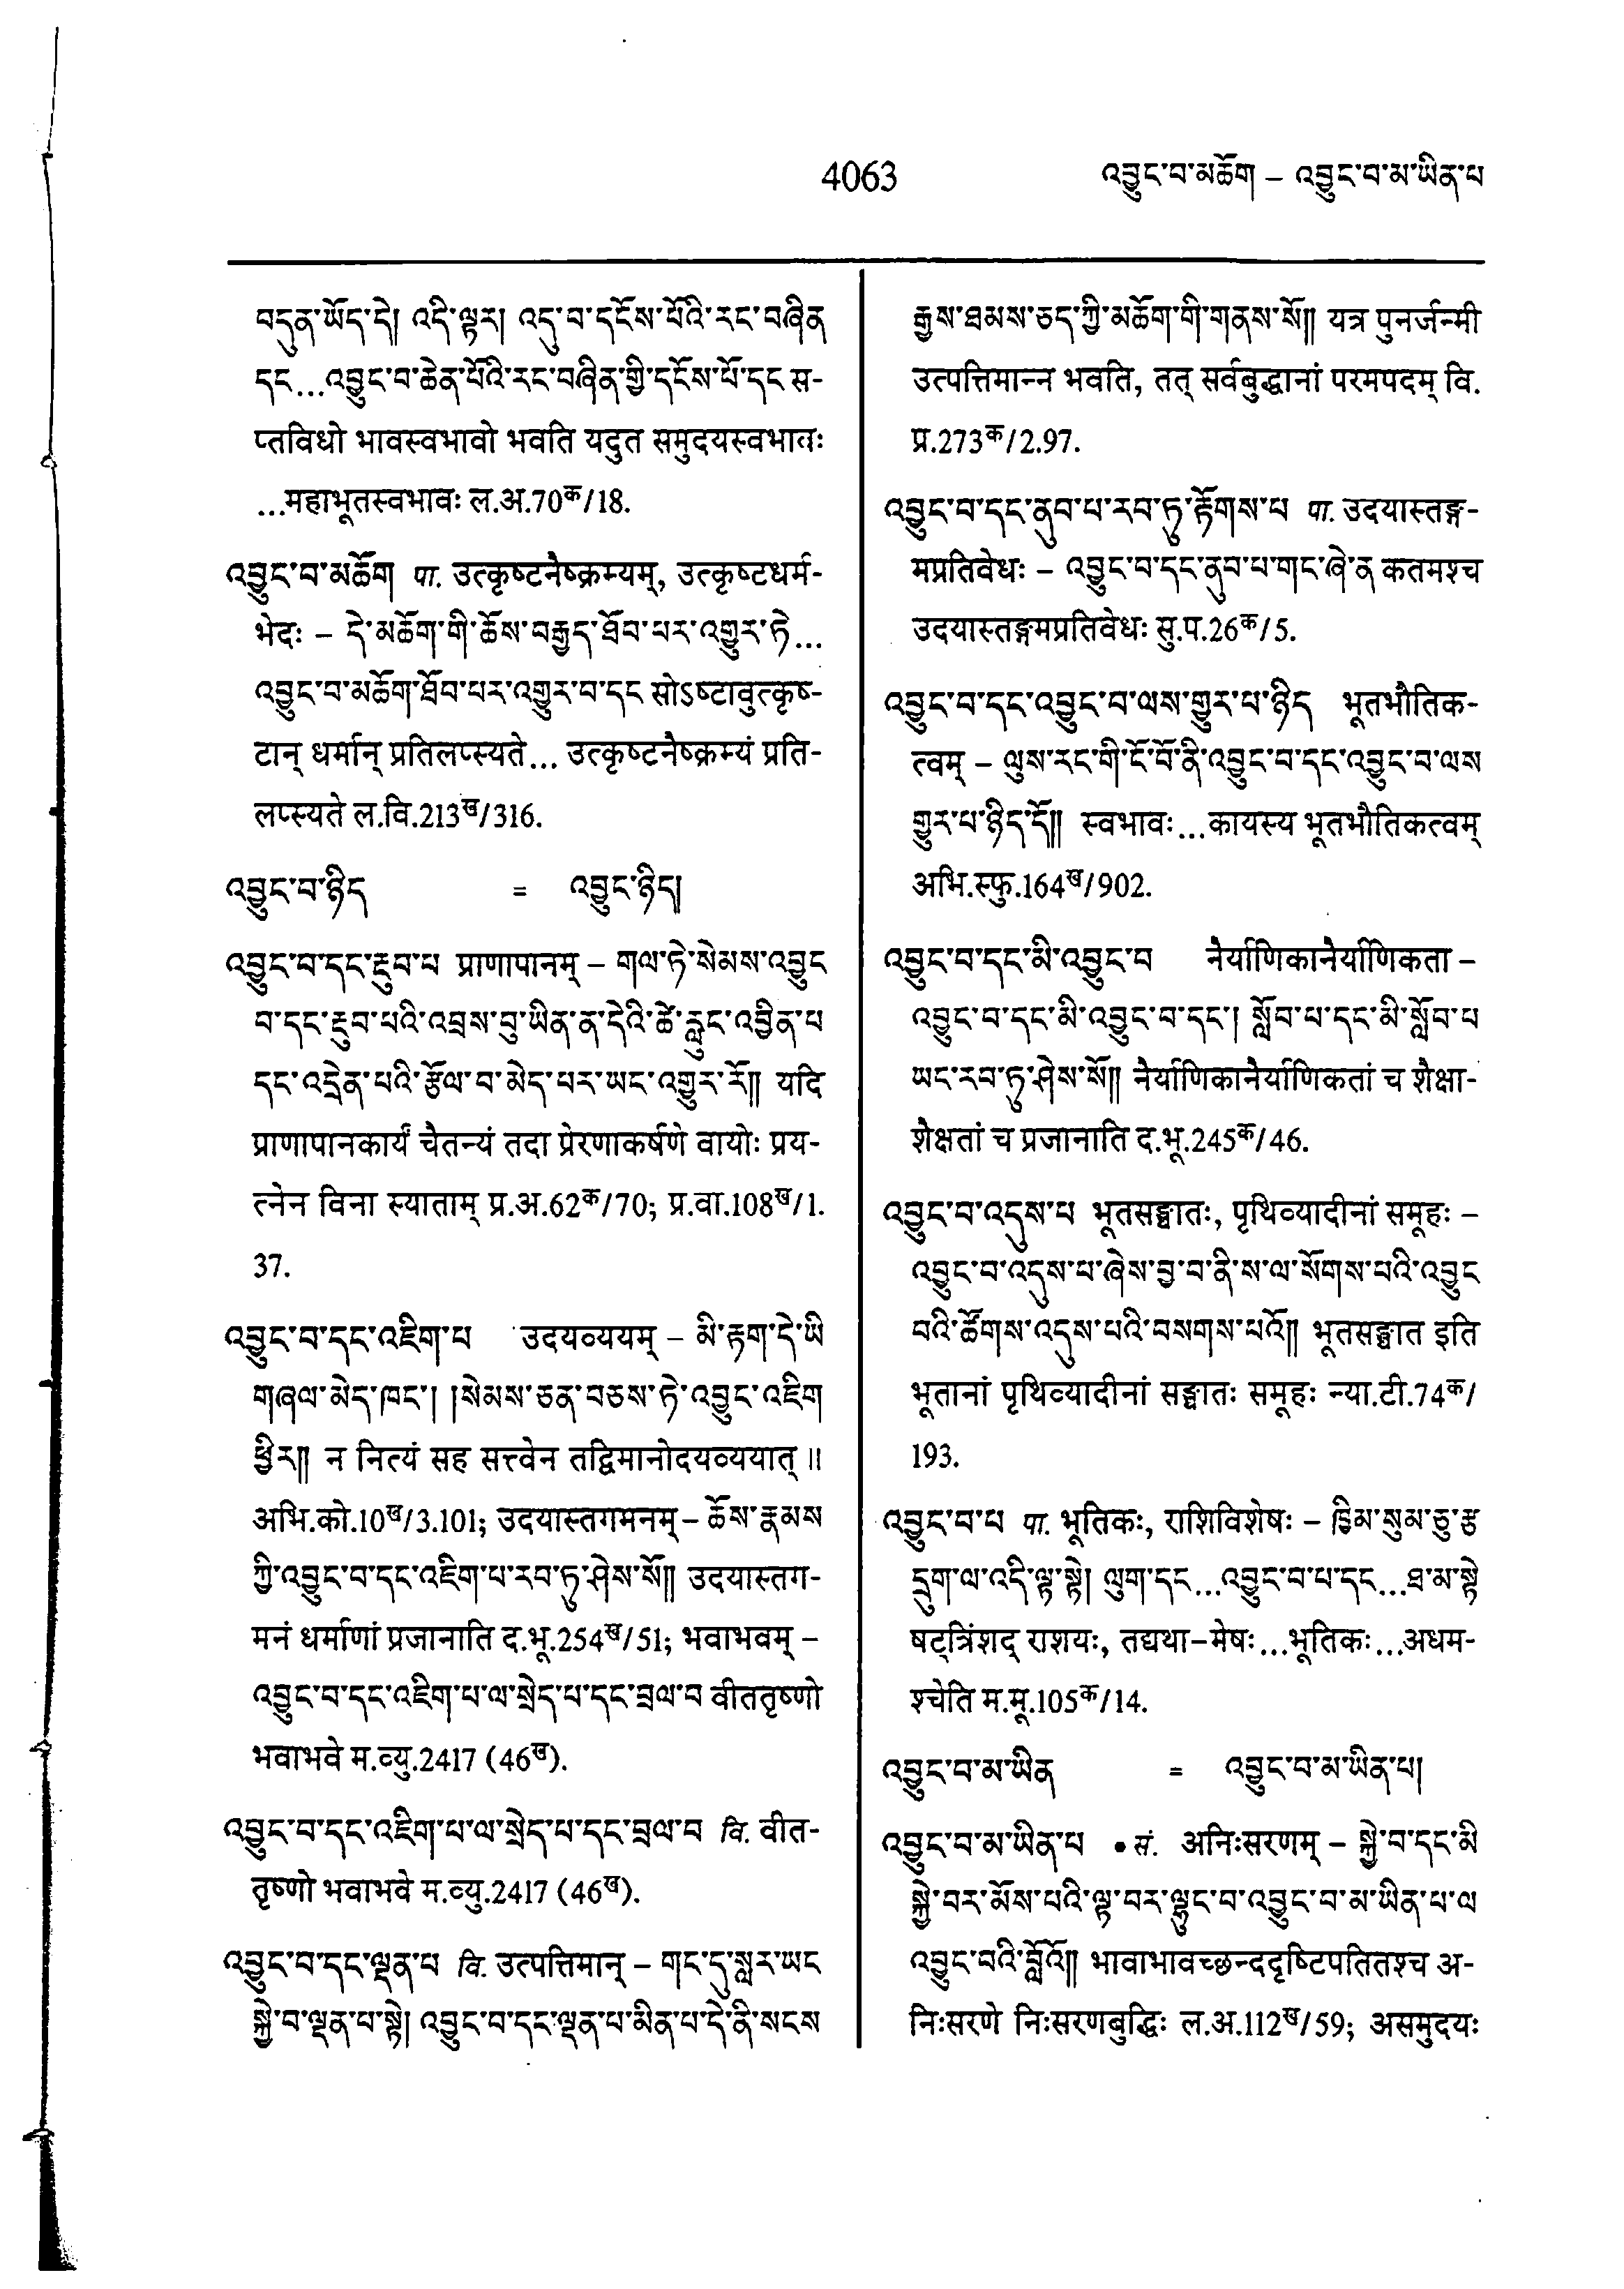 4063
འབྱུང་བ་མཆོག – འབྱུང་བ་མ་ཡིན་པ
བདུན་ཡོད་དེ། འདི་ལྟར། འདུ་བ་དངོས་པོའི་རང་བཞིན
དང...འབྱུང་བ་ཆེན་པོའི་རང་བཞིན་གྱི་དངོས་པོ་དང स-
प्तविधो भावस्वभावो भवति यदुत समुदयस्वभावः
...महाभूतस्वभावः ल.अ.70क/18.
འབྱུང་བ་མཆོག पा. उत्कृष्टनैष्क्रम्यम्, उत्कृष्टधर्म-
भेदः – དེ་མཆོག་གི་ཆོས་བརྒྱད་ཐོབ་པར་འགྱུར་ཏེ...
འབྱུང་བ་མཆོག་ཐོབ་པར་འགྱུར་བ་དང सोऽष्टावुत्कृष-
टान् धर्मान् प्रतिलप्स्यते... उत्कृष्टनैष्क्रम्यं प्रति-
लप्स्यते ल.वि.213ख/316.
འབྱུང་བ་ཉིད = འབྱུང་ཉིད།
འབྱུང་བ་དང་རྔུབ་པ प्राणापानम् – གལ་ཏེ་སེམས་འབྱུང
བ་དང་རྔུབ་པའི་འབྲས་བུ་ཡིན་ན་དེའི་ཚེ་རླུང་འབྱིན་པ
དང་འདྲེན་པའི་རྩོལ་བ་མེད་པར་ཡང་འགྱུར་རོ།། यदि
प्राणापानकार्यं चैतन्यं तदा प्रेरणाकर्षणे वायोः प्रय-
त्नेन विना स्याताम् प्र.अ.62क/70; प्र.वा.108ख/1.
37.
འབྱུང་བ་དང་འཇིག་པ उदयव्ययम् – མི་རྟག་དེ་ཡི
གཞལ་མེད་ཁང་། །སེམས་ཅན་བཅས་ཏེ་འབྱུང་འཇིག
ཕྱིར།། न नित्यं सह सत्त्वेन तद्विमानोदयव्ययात् ॥
अभि.को.10ख/3.101; उदयास्तगमनम् – ཆོས་རྣམས
ཀྱི་འབྱུང་བ་དང་འཇིག་པ་རབ་ཏུ་ཤེས་སོ།། उदयास्तग-
मनं धर्माणां प्रजानाति द.भू.254ख/51; भवाभवम् –
འབྱུང་བ་དང་འཇིག་པ་ལ་སྲེད་པ་དང་བྲལ་བ वीततृष्णो
भवाभवे म.व्यु.2417 (46ख).
འབྱུང་བ་དང་འཇིག་པ་ལ་སྲེད་པ་དང་བྲལ་བ वि. वीत-
तृष्णो भवाभवे म.व्यु.2417 (46ख).
འབྱུང་བ་དང་ལྡན་པ वि. उत्पत्तिमान् – གང་དུ་སླར་ཡང
སྐྱེ་བ་ལྡན་པ་སྟེ། འབྱུང་བ་དང་ལྡན་པ་མིན་པ་དེ་ནི་སངས
རྒྱས་ཐམས་ཅད་ཀྱི་མཆོག་གི་གནས་སོ།། यत्र पुनर्जन्मी
उत्पत्तिमान्न भवति, तत् सर्वबुद्धानां परमपदम् वि.
प्र.273क/2.97.
འབྱུང་བ་དང་ནུབ་པ་རབ་ཏུ་རྟོགས་པ पा. उदयास्तङ्ग-
मप्रतिवेधः – འབྱུང་བ་དང་ནུབ་པ་གང་ཞེ་ན कतमश्च
उदयास्तङ्गमप्रतिवेधः सु.प.26क/5.
འབྱུང་བ་དང་འབྱུང་བ་ལས་གྱུར་པ་ཉིད भूतभौतिक-
त्वम् – ལུས་རང་གི་ངོ་བོ་ནི་འབྱུང་བ་དང་འབྱུང་བ་ལས
གྱུར་པ་ཉིད་དོ།། स्वभावः...कायस्य भूतभौतिकत्वम्
अभि.स्फु.164ख/902.
འབྱུང་བ་དང་མི་འབྱུང་བ नैर्याणिकानैर्याणिकता –
འབྱུང་བ་དང་མི་འབྱུང་བ་དང་། སློབ་པ་དང་མི་སློབ་པ
ཡང་རབ་ཏུ་ཤེས་སོ།། नैर्याणिकानैर्याणिकतां च शैक्षा-
शैक्षतां च प्रजानाति द.भू.245क/46.
འབྱུང་བ་འདུས་པ भूतसङ्घातः, पृथिव्यादीनां समूहः –
འབྱུང་བ་འདུས་པ་ཞེས་བྱ་བ་ནི་ས་ལ་སོགས་པའི་འབྱུང
བའི་ཚོགས་འདུས་པའི་བསགས་པའོ།། भूतसङ्घात इति
भूतानां पृथिव्यादीनां सङ्घातः समूहः न्या.टी.74क/
193.
འབྱུང་བ་པ पा. भूतिकः, राशिविशेषः – ཁྱིམ་སུམ་ཅུ་རྩ
དྲུག་ལ་འདི་ལྟ་སྟེ། ལུག་དང...འབྱུང་བ་པ་དང...ཐ་མ་སྟེ
षट्त्रिंशद् राशयः, तद्यथा–मेषः...भूतिकः...अधम-
श्चेति म.मू.105क/14.
འབྱུང་བ་མ་ཡིན = འབྱུང་བ་མ་ཡིན་པ།
འབྱུང་བ་མ་ཡིན་པ • सं. अनिःसरणम् – སྐྱེ་བ་དང་མི
སྐྱེ་བར་མོས་པའི་ལྟ་བར་ལྷུང་བ་འབྱུང་བ་མ་ཡིན་པ་ལ
འབྱུང་བའི་བློའོ།། भावाभावच्छन्ददृष्टिपतितश्च अ-
निःसरणे निःसरणबुद्धिः ल.अ.112ख/59; असमुदयः